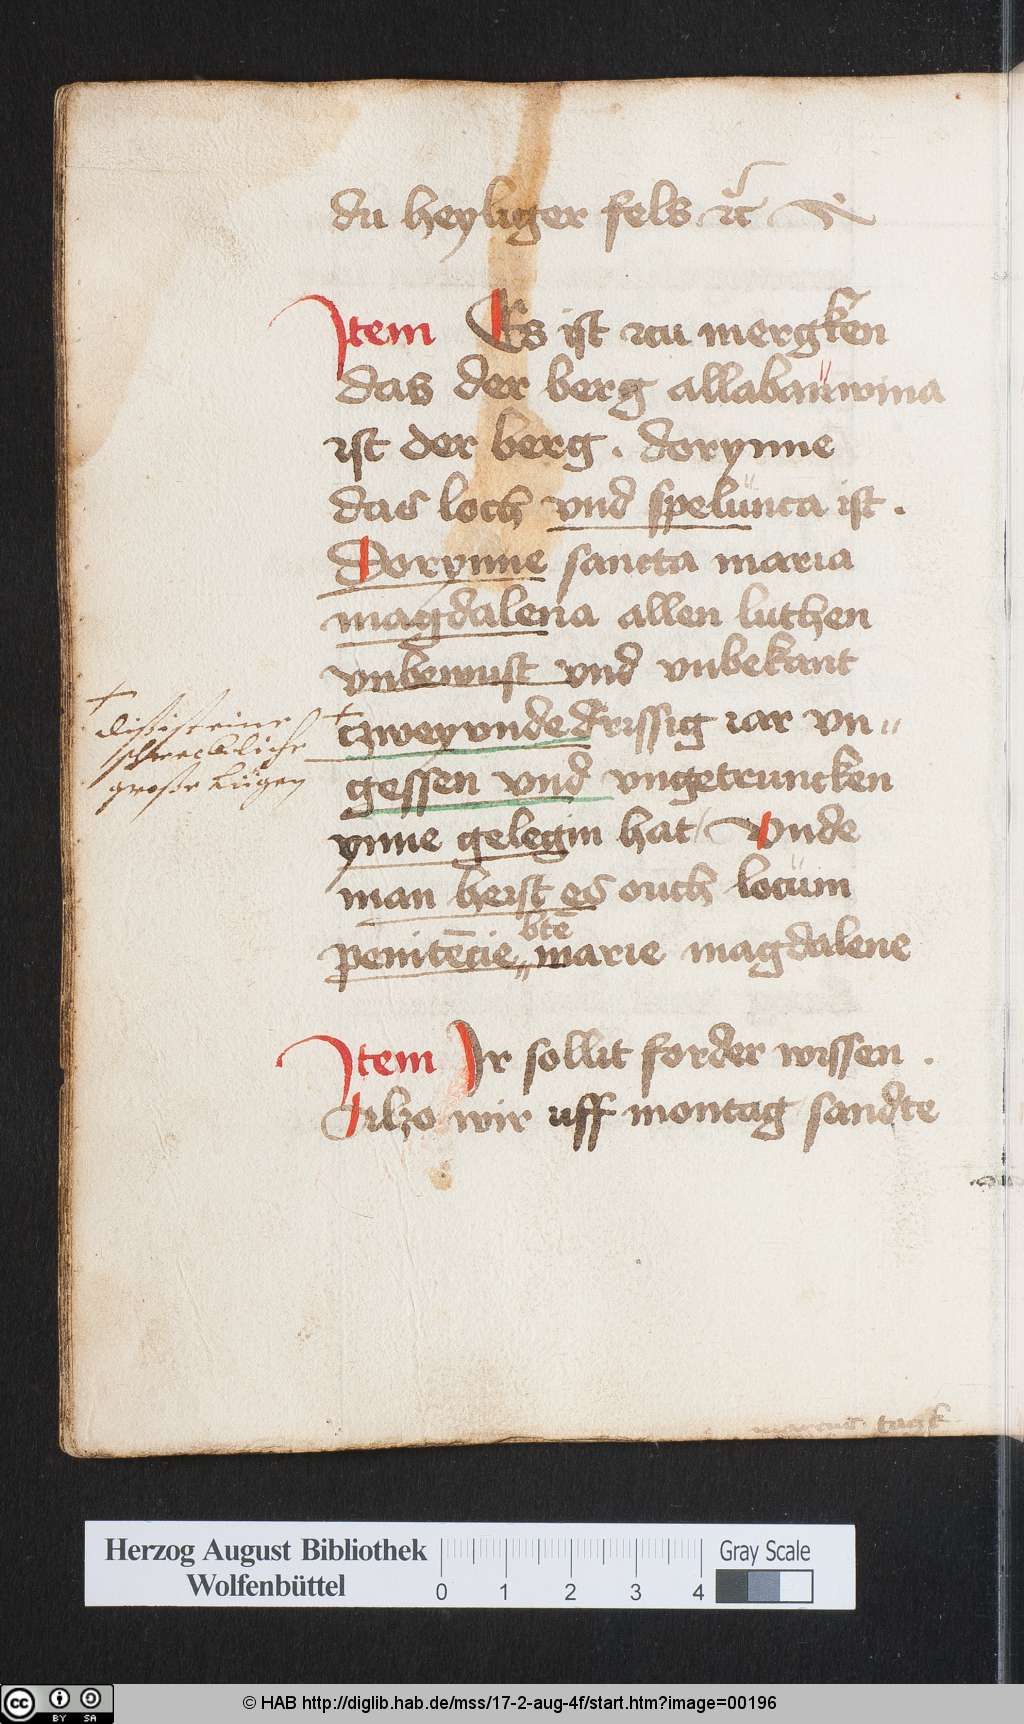 du heyliger fels ꝛc̄
Item Es ist zcu mergken
das der berg allabauwina
ist der berg . dorynne
das loch vnd spelunca ist .
Dorynne sancta maria
magdalena allen luthen
vnbewust vnd vnbekant
tzweyunde drissig iar vn
gessen vnd vngetruncken
ynne gelegin hat / Vnde
man heist es ouch locum
penitēcie btē marie magdalene
† dißist eine
schreckliche
große Lügen
Item Ir sollit forder wissen .
Alzo wir uff montag sandte
Herzog August Bibliothek
Wolfenbüttel
0 1 2 3 4
Gray Scale
cc BY SA
© HAB http://diglib.hab.de/mss/17-2-aug-4f/start.htm?image=00196